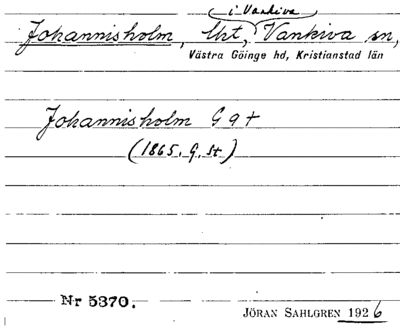 i Vankiva
Johannisholm, lht, Vankiva sn,
Västra Göinge hd, Kristianstad län
Johannisholm Gat
(1865. G. st)
Nr 5370.
JÖRAN SAHLGREN 1926